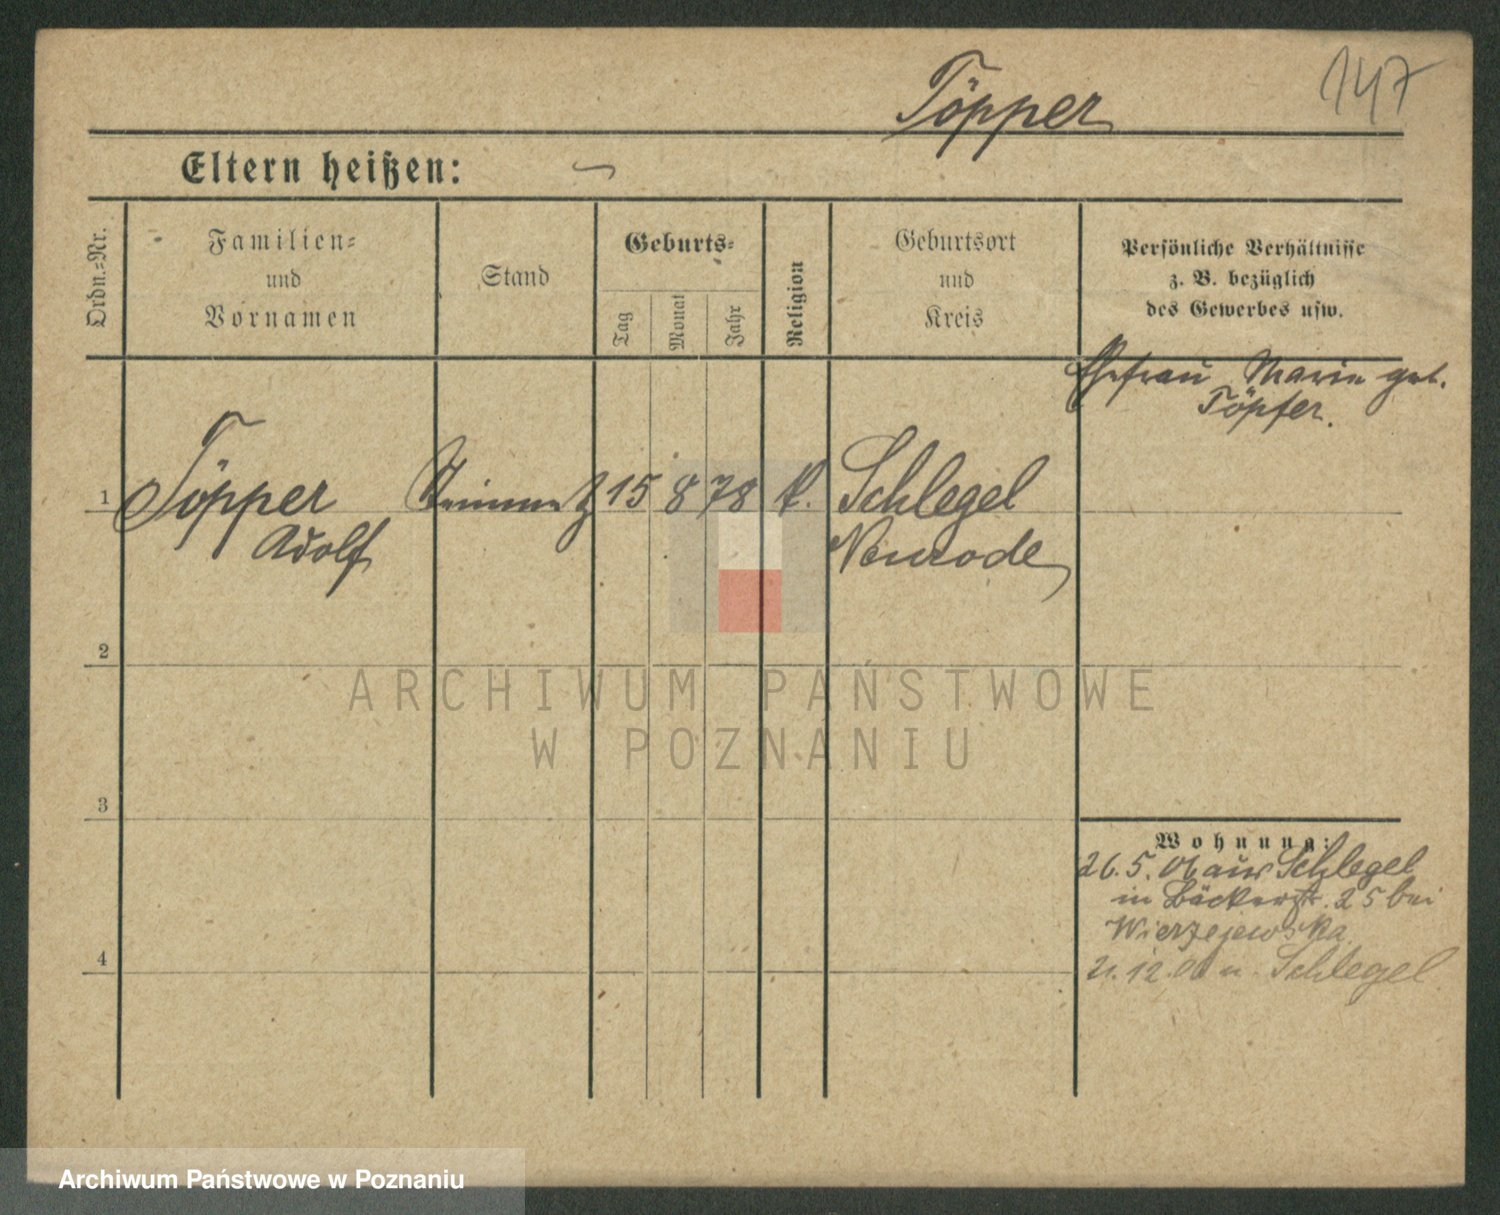 147
Töpper
Eltern heißen:
Ordn.=Nr.
Familien=
und
Vornamen
Stand
Geburts=
Tag
Monat
Jahr
Religion
Geburtsort
und
Kreis
Persönliche Verhältnisse
z. B. bezüglich
des Gewerbes usw.
Ehefrau Marie geb.
Töpfer.
1
Töpper
Adolf
Steinmetz
15
8
78
k.
Schlegel
Neurode
2
ARCHIWUM PAŃSTWOWE
W POZNANIU
3
Wohnung:
26.5.06 aus Schlegel
in Bäckerstr. 25 bei
Wierzejewska
4
21.12.06 n. Schlegel
Archiwum Państwowe w Poznaniu